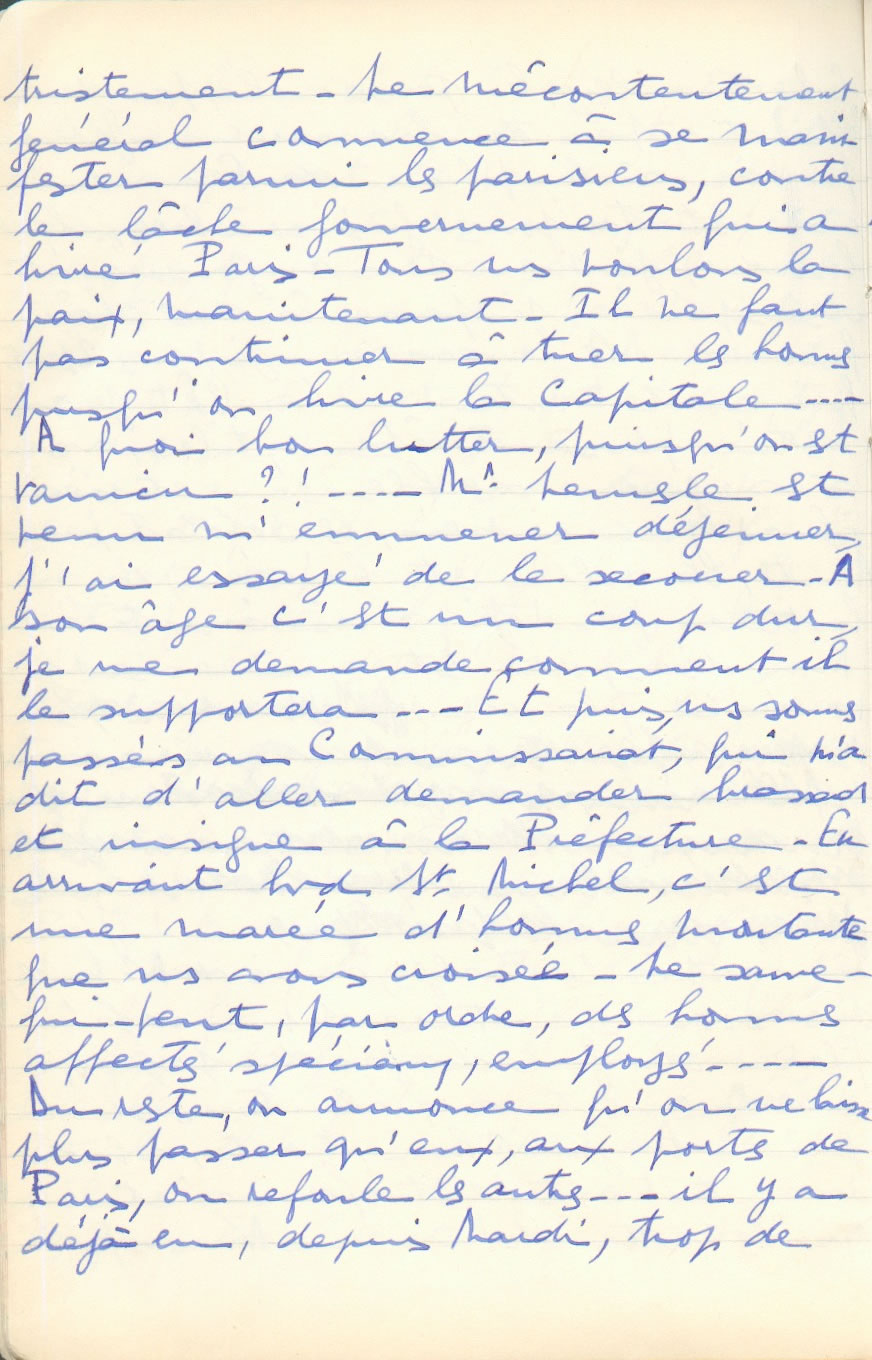 tristement - Le mécontentement
général commence à se mani
fester parmi les parisiens, contre
le lâche gouvernement qui a
livré Paris - Tous ns voulons la
paix, maintenant - Il ne faut
pas continuer à tuer les homs
puisqu'on livre la Capitale ----
A quoi bon lutter, puisqu'on est
vaincu ?! ---- Mr. est
venu m'emmener déjeuner,
j'ai essayé de le secouer - A
son âge c'est un coup dur,
je me demande comment il
le supportera --- Et puis, ns soms
passés au Commissariat, qui m'a
dit d'aller demander brassard
et insigne à la Préfecture - En
arrivant bvd St. Michel, c'est
une marée d'homms montante
que ns avons croisée - Le sauve-
qui-peut, par ordre, des homms
affectés spéciaux, employés ----
Du reste, on annonce qu'on ne laisse
plus passer qu'eux, aux portes de
Paris, on refoule les autres --- il y a
déjà eu, depuis Mardi, trop de